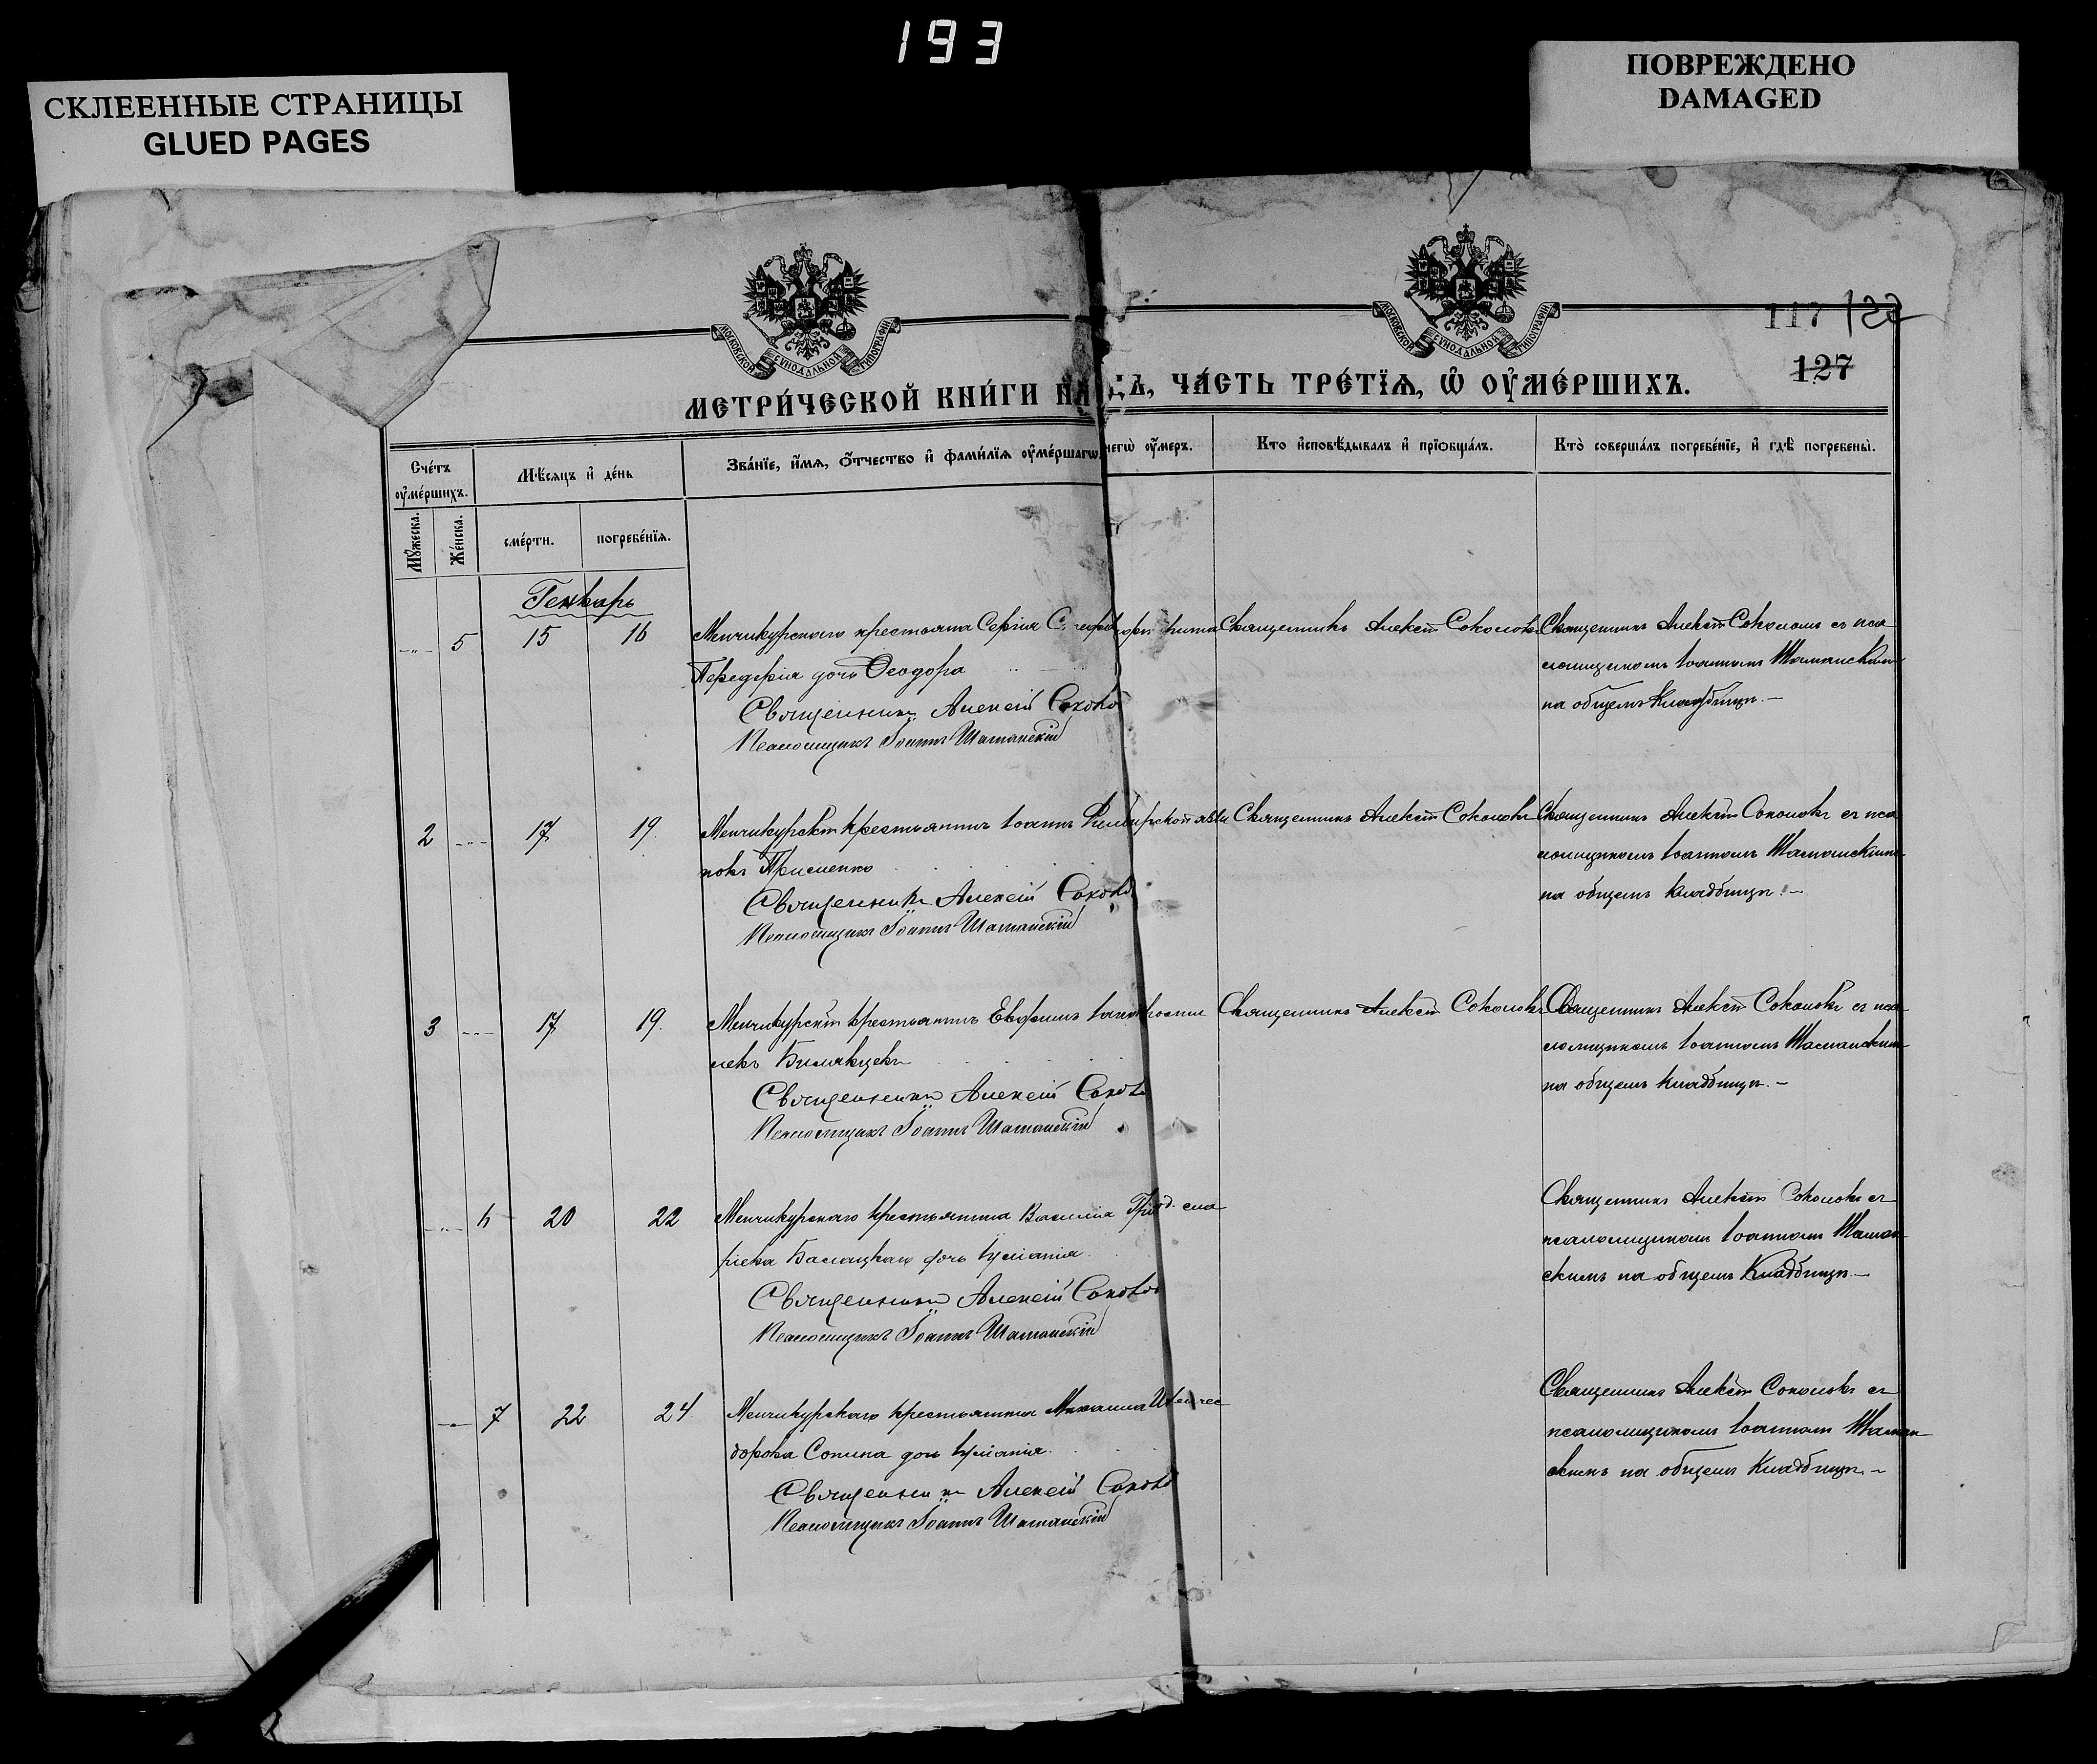 193
СКЛЕЕННЫЕ СТРАНИЦЫ
GLUED PAGES
ПОВРЕЖДЕНО
DAMAGED
МОСКОВСКОЙ СѴНОДАЛЬНОЙ ТИПОГРАФІИ
МОСКОВСКОЙ СѴНОДАЛЬНОЙ ТИПОГРАФІИ
117
127
МЕТРИ́ЧЕСКОЙ КНИ́ГИ НА
ЧА́СТЬ ТРЕ́ТЇѦ, Ѽ ОУ҆МЕ́РШИХЪ.
Сче́тъ оу҆ме́ршихъ.
Мѣ́сяцъ и҆ де́нь
Зва́нїе, и҆́мѧ, ѻ҆́тчество и҆ фами́лїѧ оу҆ме́ршагѡ
чегѡ оу҆́меръ.
Кто и҆сповѣ́дывалъ и҆ прїѻбща́лъ.
Кто̀ соверша́лъ погребе́нїе, и҆ гдѣ̀ погребены̀.
Мꙋ́жеска.
Же́нска.
сме́рти.
погребе́нїѧ.
Генварь
5 15 16 Менчикурскаго крестьянина Сергія
дочь Ѳеодора
Священникъ Алексій Соколов
Псаломщикъ Іоаннъ Шаманскій
Священникъ Алексій Соколовъ
Священникъ Алексій Соколовъ съ пса
ломщикомъ Іоанномъ Шаманскимъ
на общемъ кладбищѣ. —
2 17 19 Менчикурскій крестьянинъ Іоаннъ
новъ
Священникъ Алексій Соколов
Псаломщикъ Іоаннъ Шаманскій
Священникъ Алексій Соколовъ
Священникъ Алексій Соколовъ съ пса
ломщикомъ Іоанномъ Шаманскимъ
на общемъ кладбищѣ. —
3 17 19 Менчикурскій крестьянинъ Евфимъ
Священникъ Алексій Соколов
Псаломщикъ Іоаннъ Шаманскій
Священникъ Алексій Соколовъ
Священникъ Алексій Соколовъ съ пса
ломщикомъ Іоанномъ Шаманскимъ
на общемъ кладбищѣ. —
6 20 22 Менчикурскаго крестьянина Василія
дочь Іуліанія
Священникъ Алексій Соколов
Псаломщикъ Іоаннъ Шаманскій
Священникъ Алексій Соколовъ съ
псаломщикомъ Іоанномъ Шаман
скимъ на общемъ кладбищѣ. —
7 22 24 Менчикурскаго крестьянина Михаила
дорова Сопина дочь Іуліанія.
Священникъ Алексій Соколов
Псаломщикъ Іоаннъ Шаманскій
Священникъ Алексій Соколовъ съ
псаломщикомъ Іоанномъ Шаман
скимъ на общемъ кладбищѣ. —